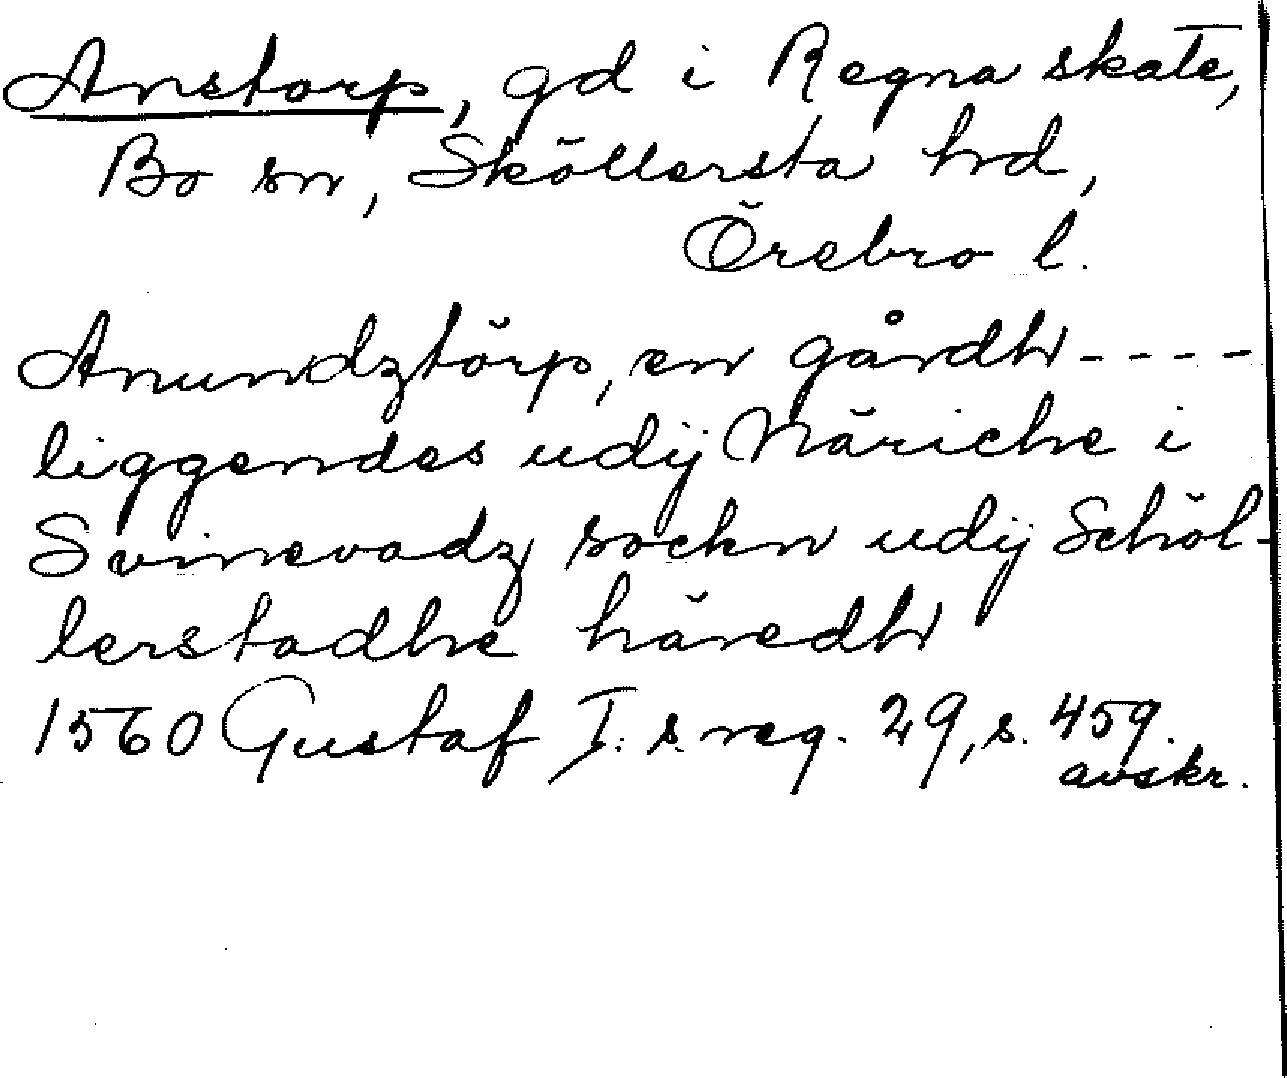 Anstorp, gd i Regna skate,
Bo sn, Sköllersta hd,
Örebro l.
Anundztörp, en gårdh - - - -
liggendes udij Näriche i
Svinevadz sockn udij Schöl-
lerstadhe häredh
1560 Gustaf I:s reg. 29, s. 459.
avskr.